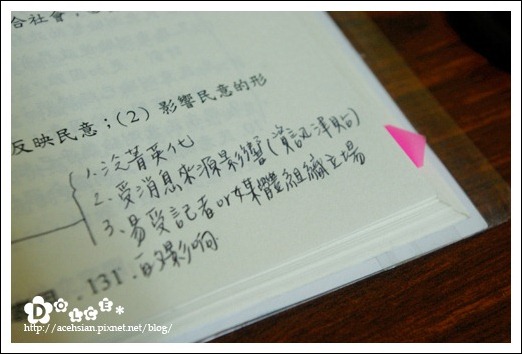 合社會，
反映民意；(2) 影響民意的形
1. 沒菁英化
2. 受消息來源影響(資訊津貼)
3. 易受記者or媒體組織立場
的影响
. 131 .
DOLCE*
http://acehsian.pixnet.net/blog/